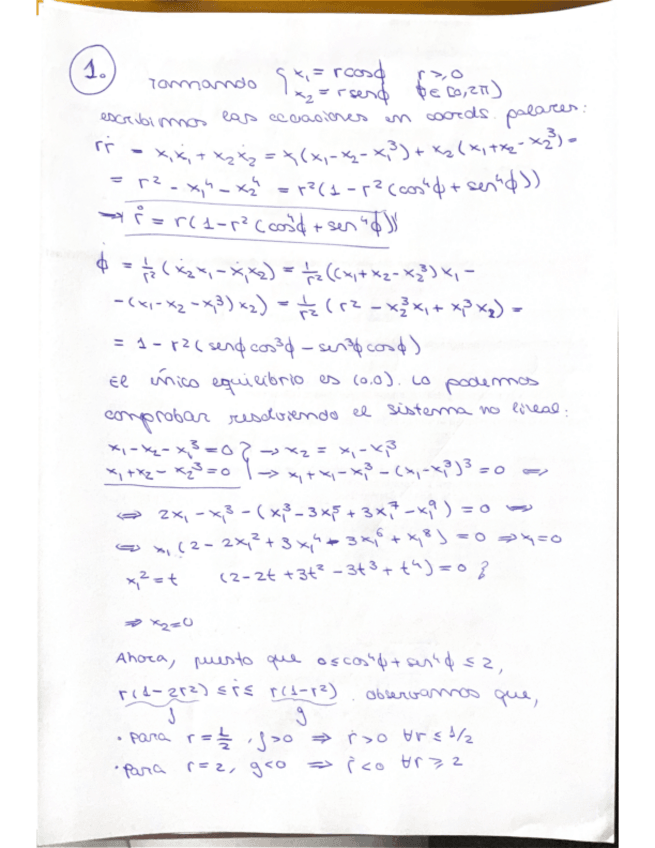 1.
Tomando { x₁ = r cosϕ r ≥ 0
x₂ = r senϕ ϕ ∈ [0,2π)
escribimos las ecuaciones en coords. polares:
rṙ = x₁ẋ₁ + x₂ẋ₂ = x₁(x₁-x₂-x₁³) + x₂(x₁+x₂-x₂³) =
= r² - x₁⁴ - x₂⁴ = r²(1 - r²(cos⁴ϕ + sen⁴ϕ))
→ ṙ = r(1-r²(cos⁴ϕ + sen⁴ϕ))
ϕ̇ = 1/r² (ẋ₂x₁ - ẋ₁x₂) = 1/r² ((x₁+x₂-x₂³)x₁ -
-(x₁-x₂-x₁³)x₂) = 1/r² (r² - x₂³x₁ + x₁³x₂) =
= 1 - r²(senϕcos³ϕ - sen³ϕcosϕ)
El único equilibrio es (0,0). Lo podemos
comprobar resolviendo el sistema no lineal:
x₁-x₂-x₁³=0 } → x₂ = x₁-x₁³
x₁+x₂-x₂³=0 → x₁+x₁-x₁³-(x₁-x₁³)³=0 ⇔
⇔ 2x₁-x₁³-(x₁³-3x₁⁵+3x₁⁷-x₁⁹)=0 ⇔
⇔ x₁(2-2x₁²+3x₁⁴-3x₁⁶+x₁⁸)=0 ⇒ x₁=0
x₁²=t (2-2t+3t²-3t³+t⁴)=0 ?
⇒ x₂=0
Ahora, puesto que 0≤cos⁴ϕ+sen⁴ϕ≤2,
r(1-2r²) ≤ ṙ ≤ r(1-r²). observamos que,
f g
· para r=1/2, f>0 ⇒ ṙ>0 ∀r≤1/2
· para r=2, g<0 ⇒ ṙ<0 ∀r≥2